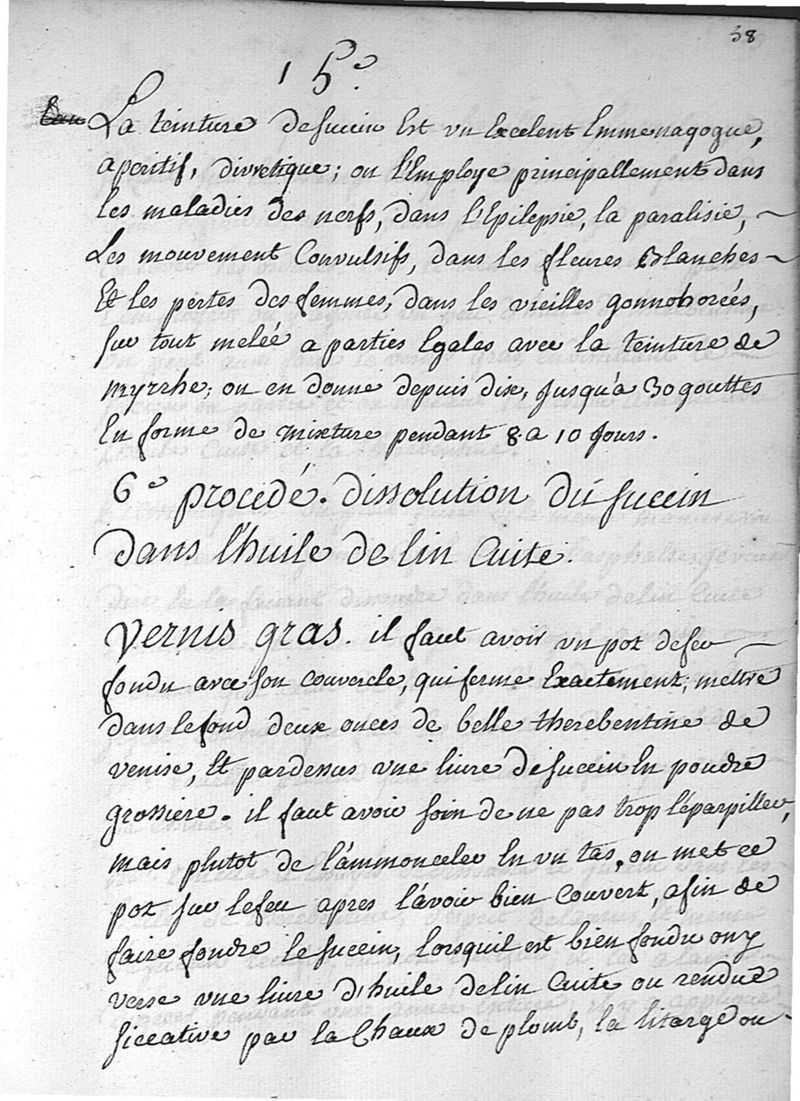 38
15º
La teinture de succin Est un Excelent Emmenagogue,
aperitif, diuretique; on l'Employe principallement dans
les maladies des nerfs, dans l'Epilepsie, la paralisie,
Les mouvement Convulsifs, dans les fleures Blanches
Et les pertes des femmes, dans les vieilles gonnohoreés,
sur tout meleé a parties Egales avec la teinture de
myrrhe; on en donne depuis dix, jusqu'a 30 gouttes
En forme de mixture pendant 8 a 10 jours.
6º procedé. dissolution du succin
dans l'huile de lin Cuite.
Vernis gras. il faut avoir un pot de feu
fondu avec son couvercle, qui ferme Exactement; mettre
dans le fond deux onces de belle therebentine de
venise, Et pardessus une livre de succin En poudre
grossiere. il faut avoir soin de ne pas trop l'éparpiller,
mais plutot de l'ammonceler En un tas, on met ce
pot sur le feu apres l'avoir bien Couvert, afin de
faire fondre le succin, lorsquil est bien fondu on y
verse une livre d'huile de lin Cuite ou rendue
siccative par la Chaux de plomb, la litarge ou